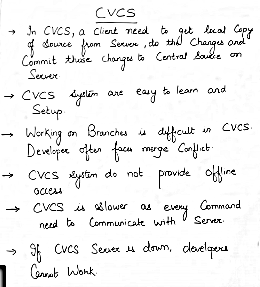 CVCS
→ In CVCS, a client need to get local Copy
of Source from Server, do the Changes and
Commit those changes to Central Source on
Server
→ CVCS System are easy to learn and
Setup.
→ Working on Branches is difficult in CVCS.
Developer often faces merge Conflict.
→ CVCS System do not provide offline
access
→ CVCS is slower as every Command
need to Communicate with Server.
→ If CVCS Server is down, developers
Cannot Work.